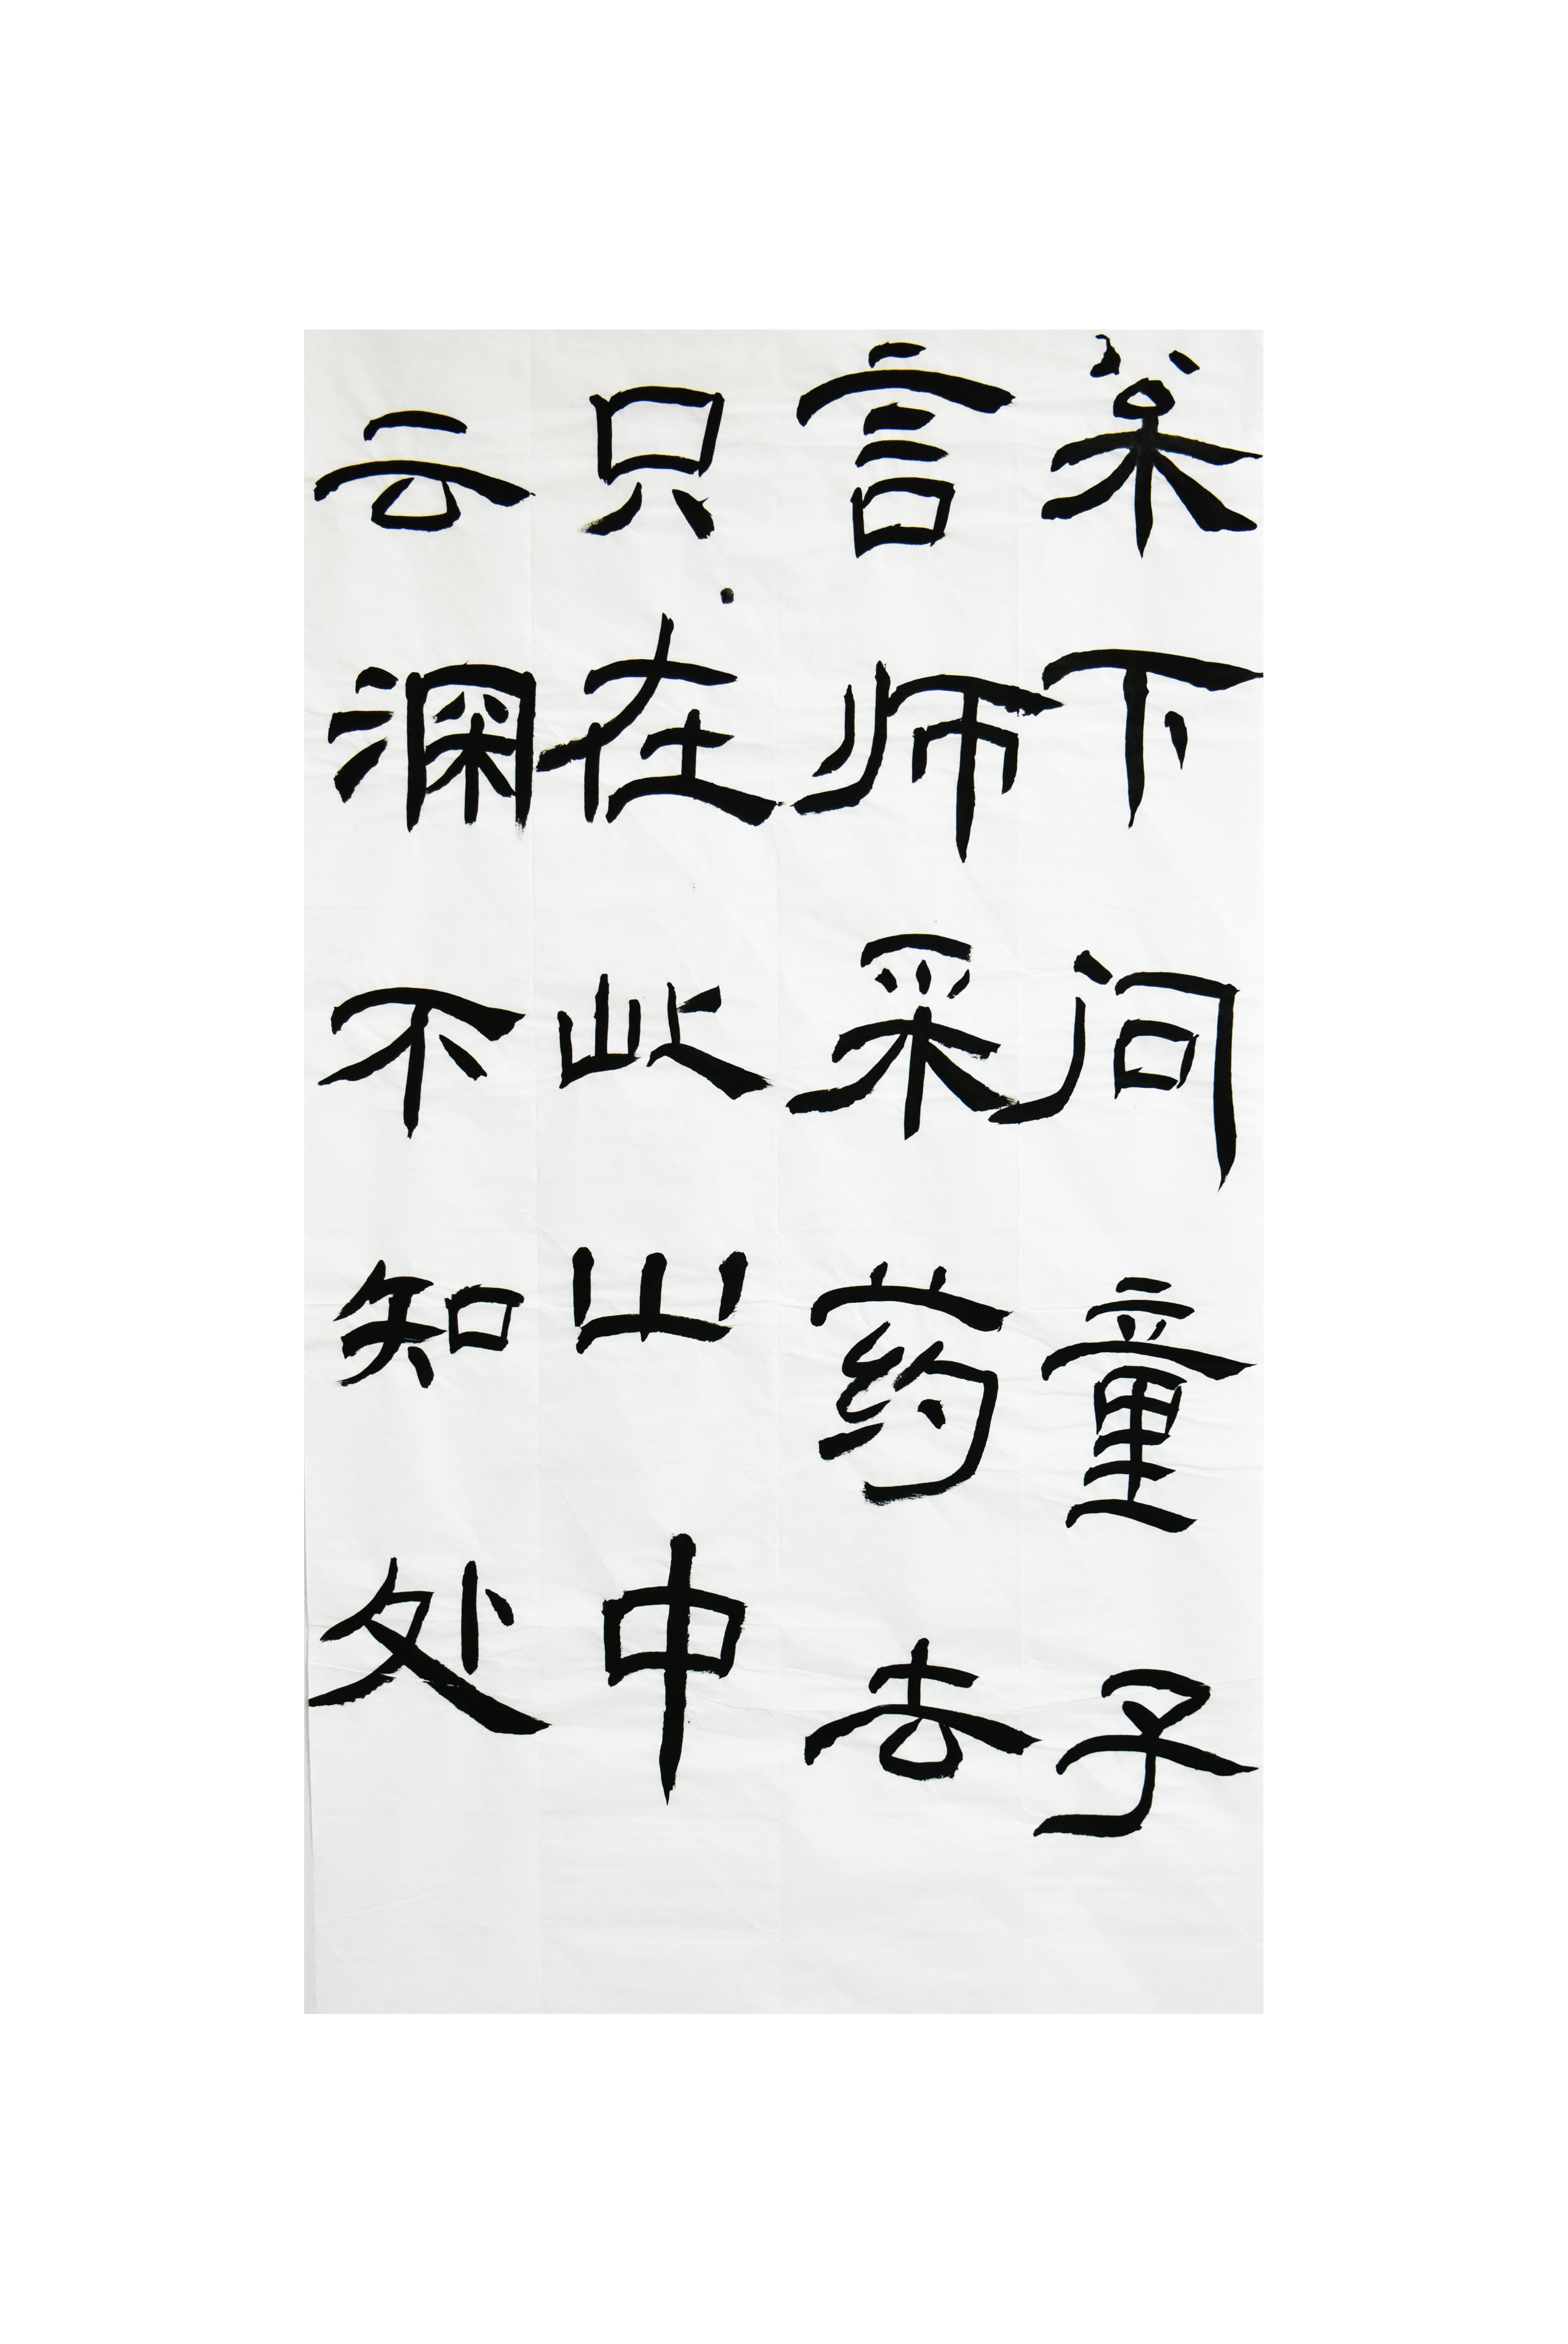 枀下问童子
言师采药去
只在此山中
云深不知处